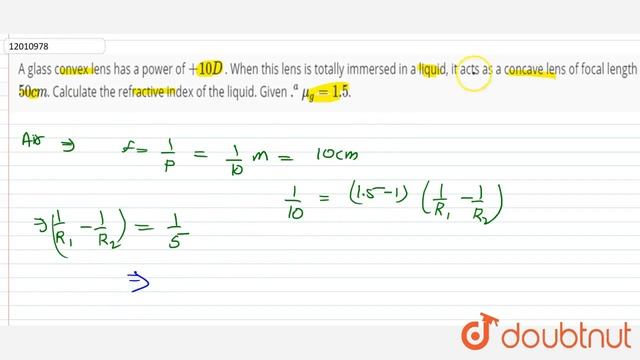 12010978
A glass convex lens has a power of +10D. When this lens is totally immersed in a liquid, it acts as a concave lens of focal length
50cm. Calculate the refractive index of the liquid. Given .ᵃ μ_g = 1.5.
Air ⇒ f = 1/P = 1/10 m = 10cm
1/10 = (1.5-1) (1/R₁ - 1/R₂)
⇒ (1/R₁ - 1/R₂) = 1/5
⇒
doubtnut